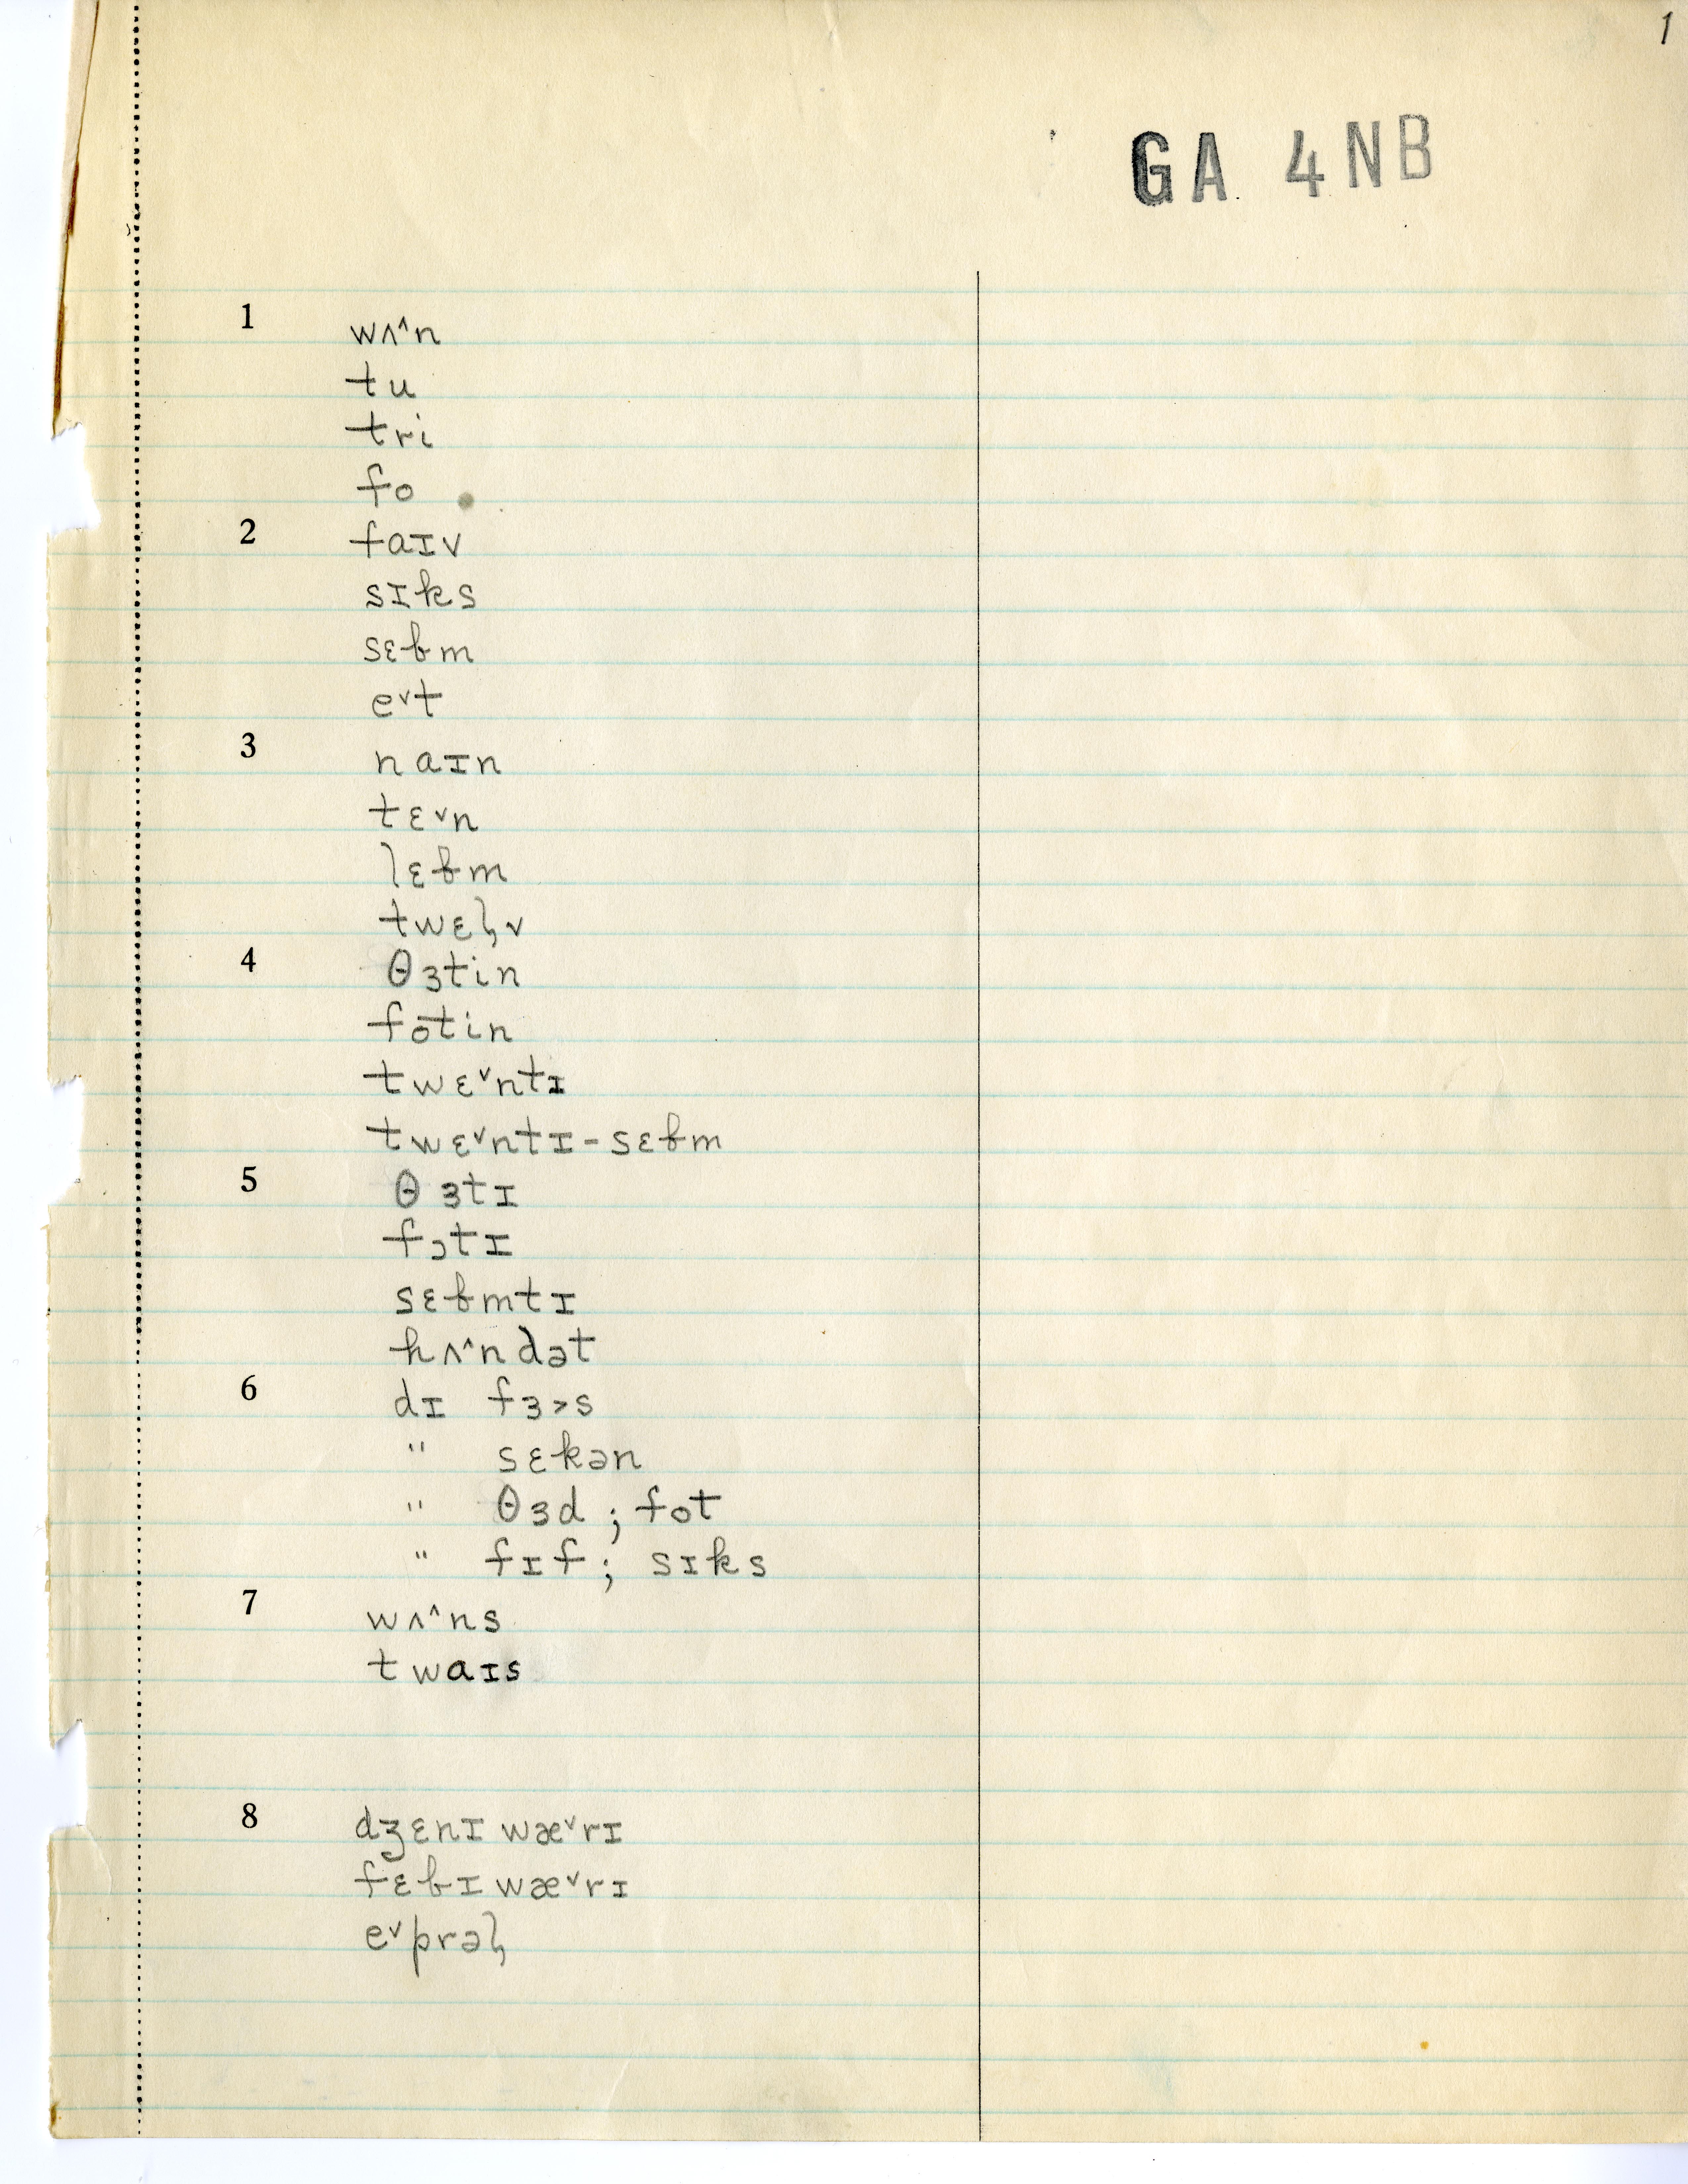 1
GA 4NB
1 wʌ˄n
tu
tri
fo
2 faɪv
sɪks
sɛɓm
e˅t
3 naɪn
tɛ˅n
lɛɓm
twɛɫ̡v
4 θɜtin
fotin
twɛ˅ntɪ
twɛ˅ntɪ-sɛɓm
5 θɜtɪ
fɔtɪ
sɛɓmtɪ
hʌ˄ndət
6 dɪ fɜ˃s
" sɛkən
" θɜd ; fot
" fɪf ; sɪks
7 wʌ˄ns
twaɪs
8 dʒɛnɪwæ˅rɪ
fɛɓɪwæ˅rɪ
e˅prəɫ̡